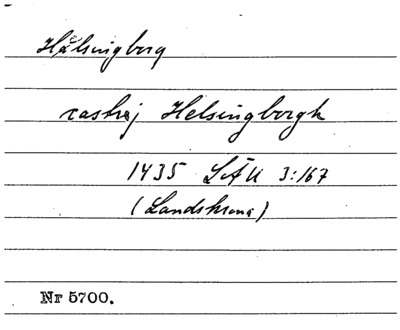 Hälsingborg
castrej Helsingborgh
1435 LÄU 3:167
(Landskrona)
Nr 5700.